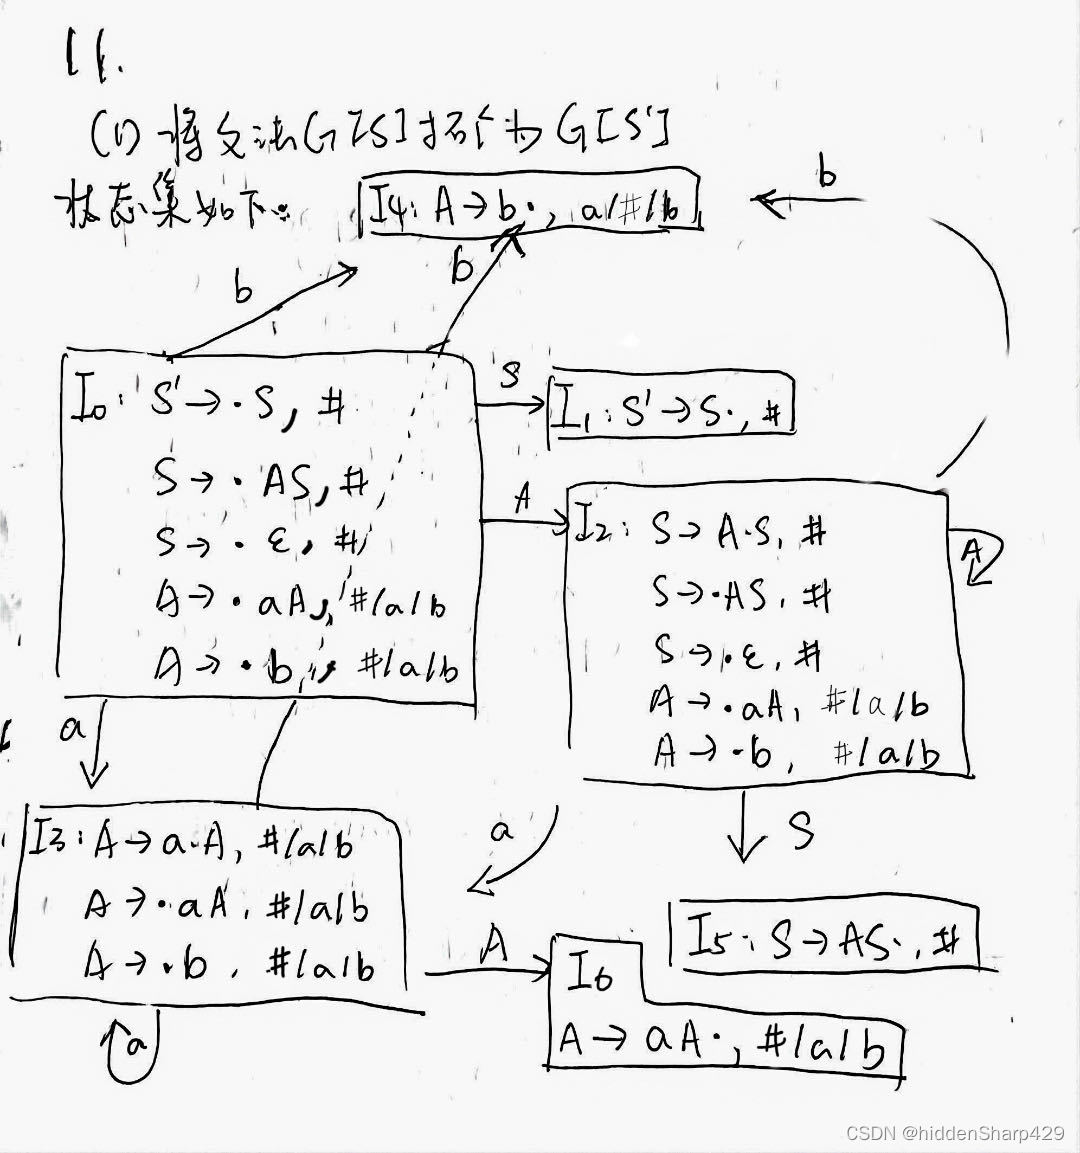 11.
(1) 将文法G[S]拓广为G[S']
状态集如下:
I4: A→b·, a/#/b
b
b
b
I0: S'→·S, #
S→·AS, #
S→·ε, #
A→·aA, #/a/b
A→·b, #/a/b
S
I1: S'→S·, #
A
I2: S→A·S, #
S→·AS, #
S→·ε, #
A→·aA, #/a/b
A→·b, #/a/b
A
a
I3: A→a·A, #/a/b
A→·aA, #/a/b
A→·b, #/a/b
a
a
S
I5: S→AS·, #
A
I6
A→aA·, #/a/b
CSDN @hiddenSharp429